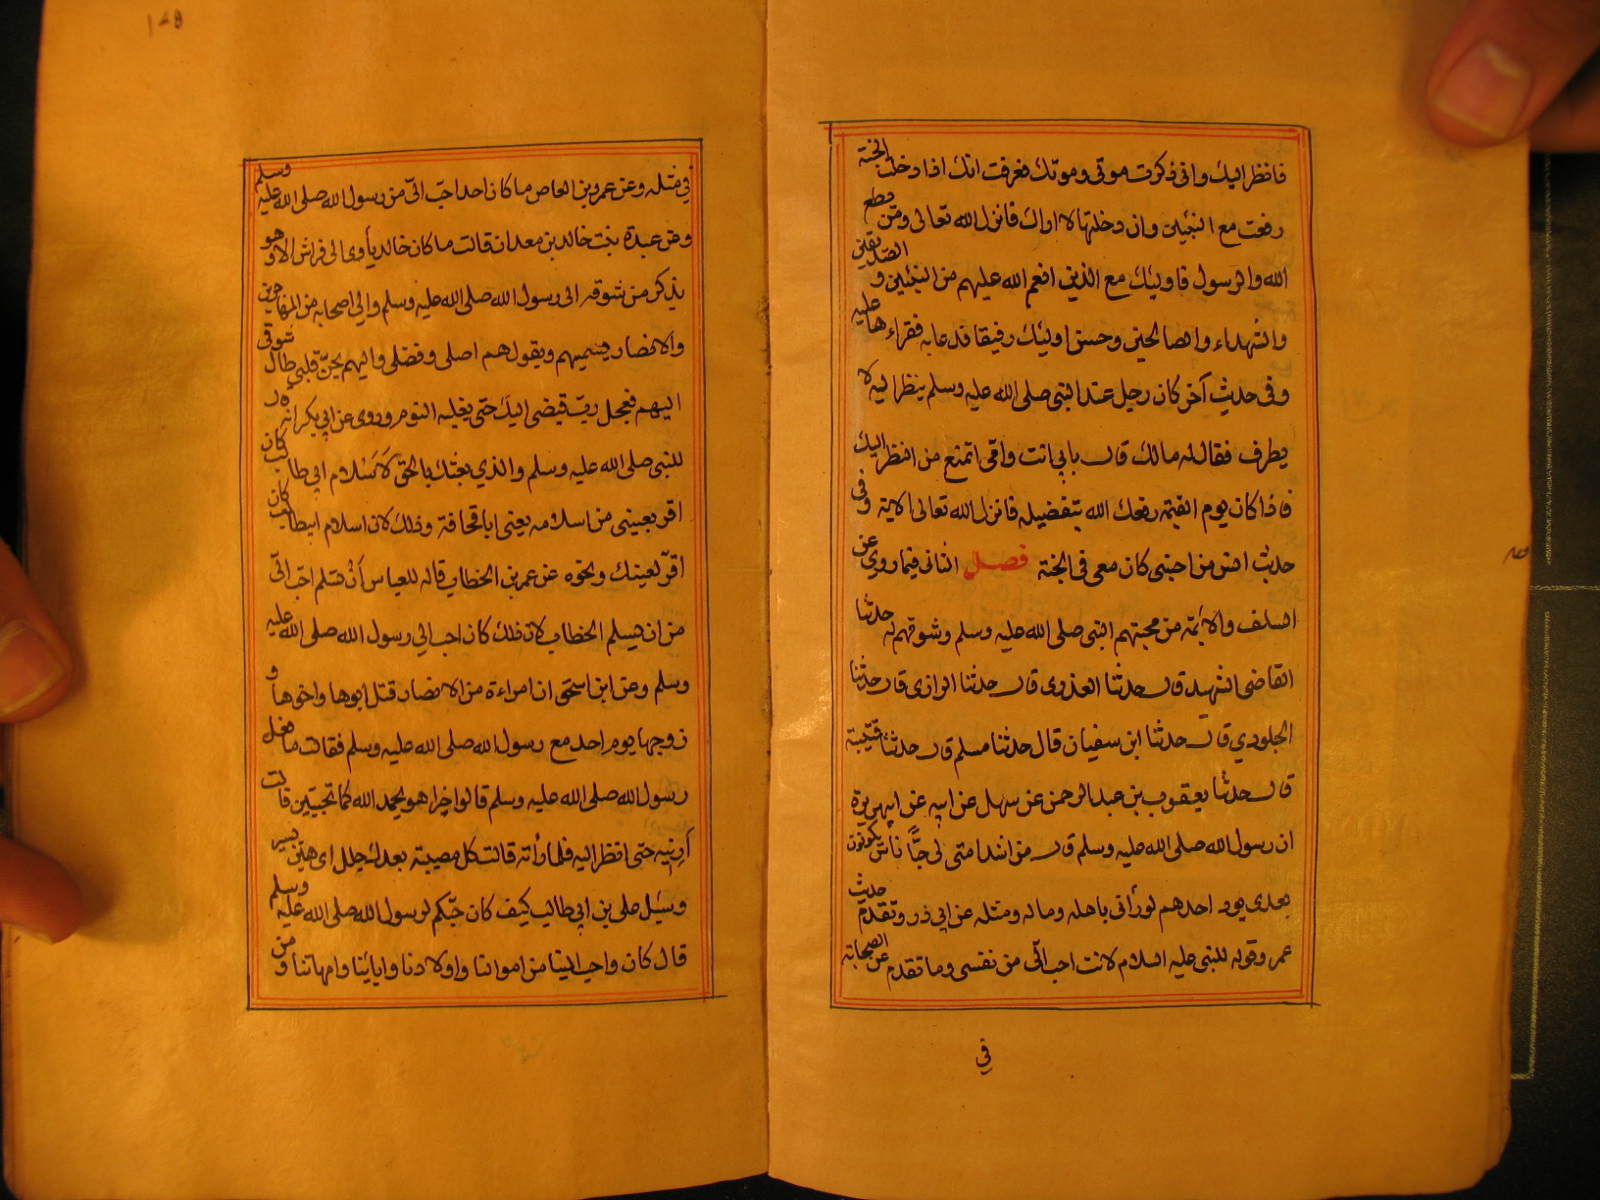 فانظر اليك واني ذكرت موتي وموتك فعرفت انك اذا دخلت الجنة
رفعت مع النبيين وان دخلتها لا اراك فانزل الله تعالى ومن يطع
الله والرسول فاوليك مع الذين انعم الله عليهم من النبيين و الصديقين
والشهداء والصالحين وحسن اوليك رفيقا فدعا به فقراءها عليه
وفي حديث آخر كان رجل عند النبي صلى الله عليه وسلم ينظر اليه لا
يطرف فقال له مالك قال بابي انت وامي اتمتع من النظر اليك
فاذا كان يوم القيمة رفعك الله بتفضيله فانزل الله تعالى الاية وفي
حديث انس من احبني كان معي في الجنة فصل الثاني فيما روي عن
السلف والائمة من محبتهم النبي صلى الله عليه وسلم وشوقهم له حدثنا
القاضي الشهيد قال حدثنا العذري قال حدثنا الرازي قال حدثنا
الجلودي قال حدثنا ابن سفيان قال حدثنا مسلم قال حدثنا قتيبة
قال حدثنا يعقوب بن عبد الرحمن عن سهل عن ابيه عن ابي هريرة
ان رسول الله صلى الله عليه وسلم قال من اشد امتي لي حبًّا ناس يكونون
بعدي يود احدهم لو رآني باهله وماله ومثله عن ابي ذر وتقدم حديث
عمر وقوله للنبي عليه السلام لانت احب الّي من نفسي وما تقدم عن الصحابة
في
في مثله وعن عمرو بن العاص ما كان احد احبّ اليّ من رسول الله صلى الله عليه وسلم
وعن عبدة بنت خالد بن معدان قالت ما كان خالد يأوي الى فراش الا وهو
يذكر من شوقه الى رسول الله صلى الله عليه وسلم والى اصحابه من المهاجرين
والانصار يسميهم ويقول هم اصلي وفصلي واليهم يحنّ قلبي طال شوقي
اليهم فعجل ربّ قبضي اليك حتى يغلبه النوم وروي عن ابي بكر انه قال
للنبي صلى الله عليه وسلم والذي بعثك بالحق لاسلام ابي طالب كان
اقر لعيني من اسلامه يعني ابا قحافة وذلك لان اسلام ابيطالب كان
اقرّ لعينك ونحوه عن عمر بن الخطاب قاله للعباس أن تسلم احبّ الّي
من ان يسلم الخطاب لان ذلك كان احب الى رسول الله صلى الله عليه
وسلم وعن ابن اسحق ان امراءة من الانصار قتل ابوها واخوها و
زوجها يوم احد مع رسول الله صلى الله عليه وسلم فقالت ما فعل
رسول الله صلى الله عليه وسلم قالوا خيرا هو بحمد الله كما تحبّين قالت
أرنيه حتى انظر اليه فلما رأته قالت كل مصيبة بعدك جلل اي هيّن يسير
وسئل علي بن ابي طالب كيف كان حبّكم لرسول الله صلى الله عليه وسلم
قال كان واحب الينا من اموالنا واولادنا وابائنا وامهاتنا و من